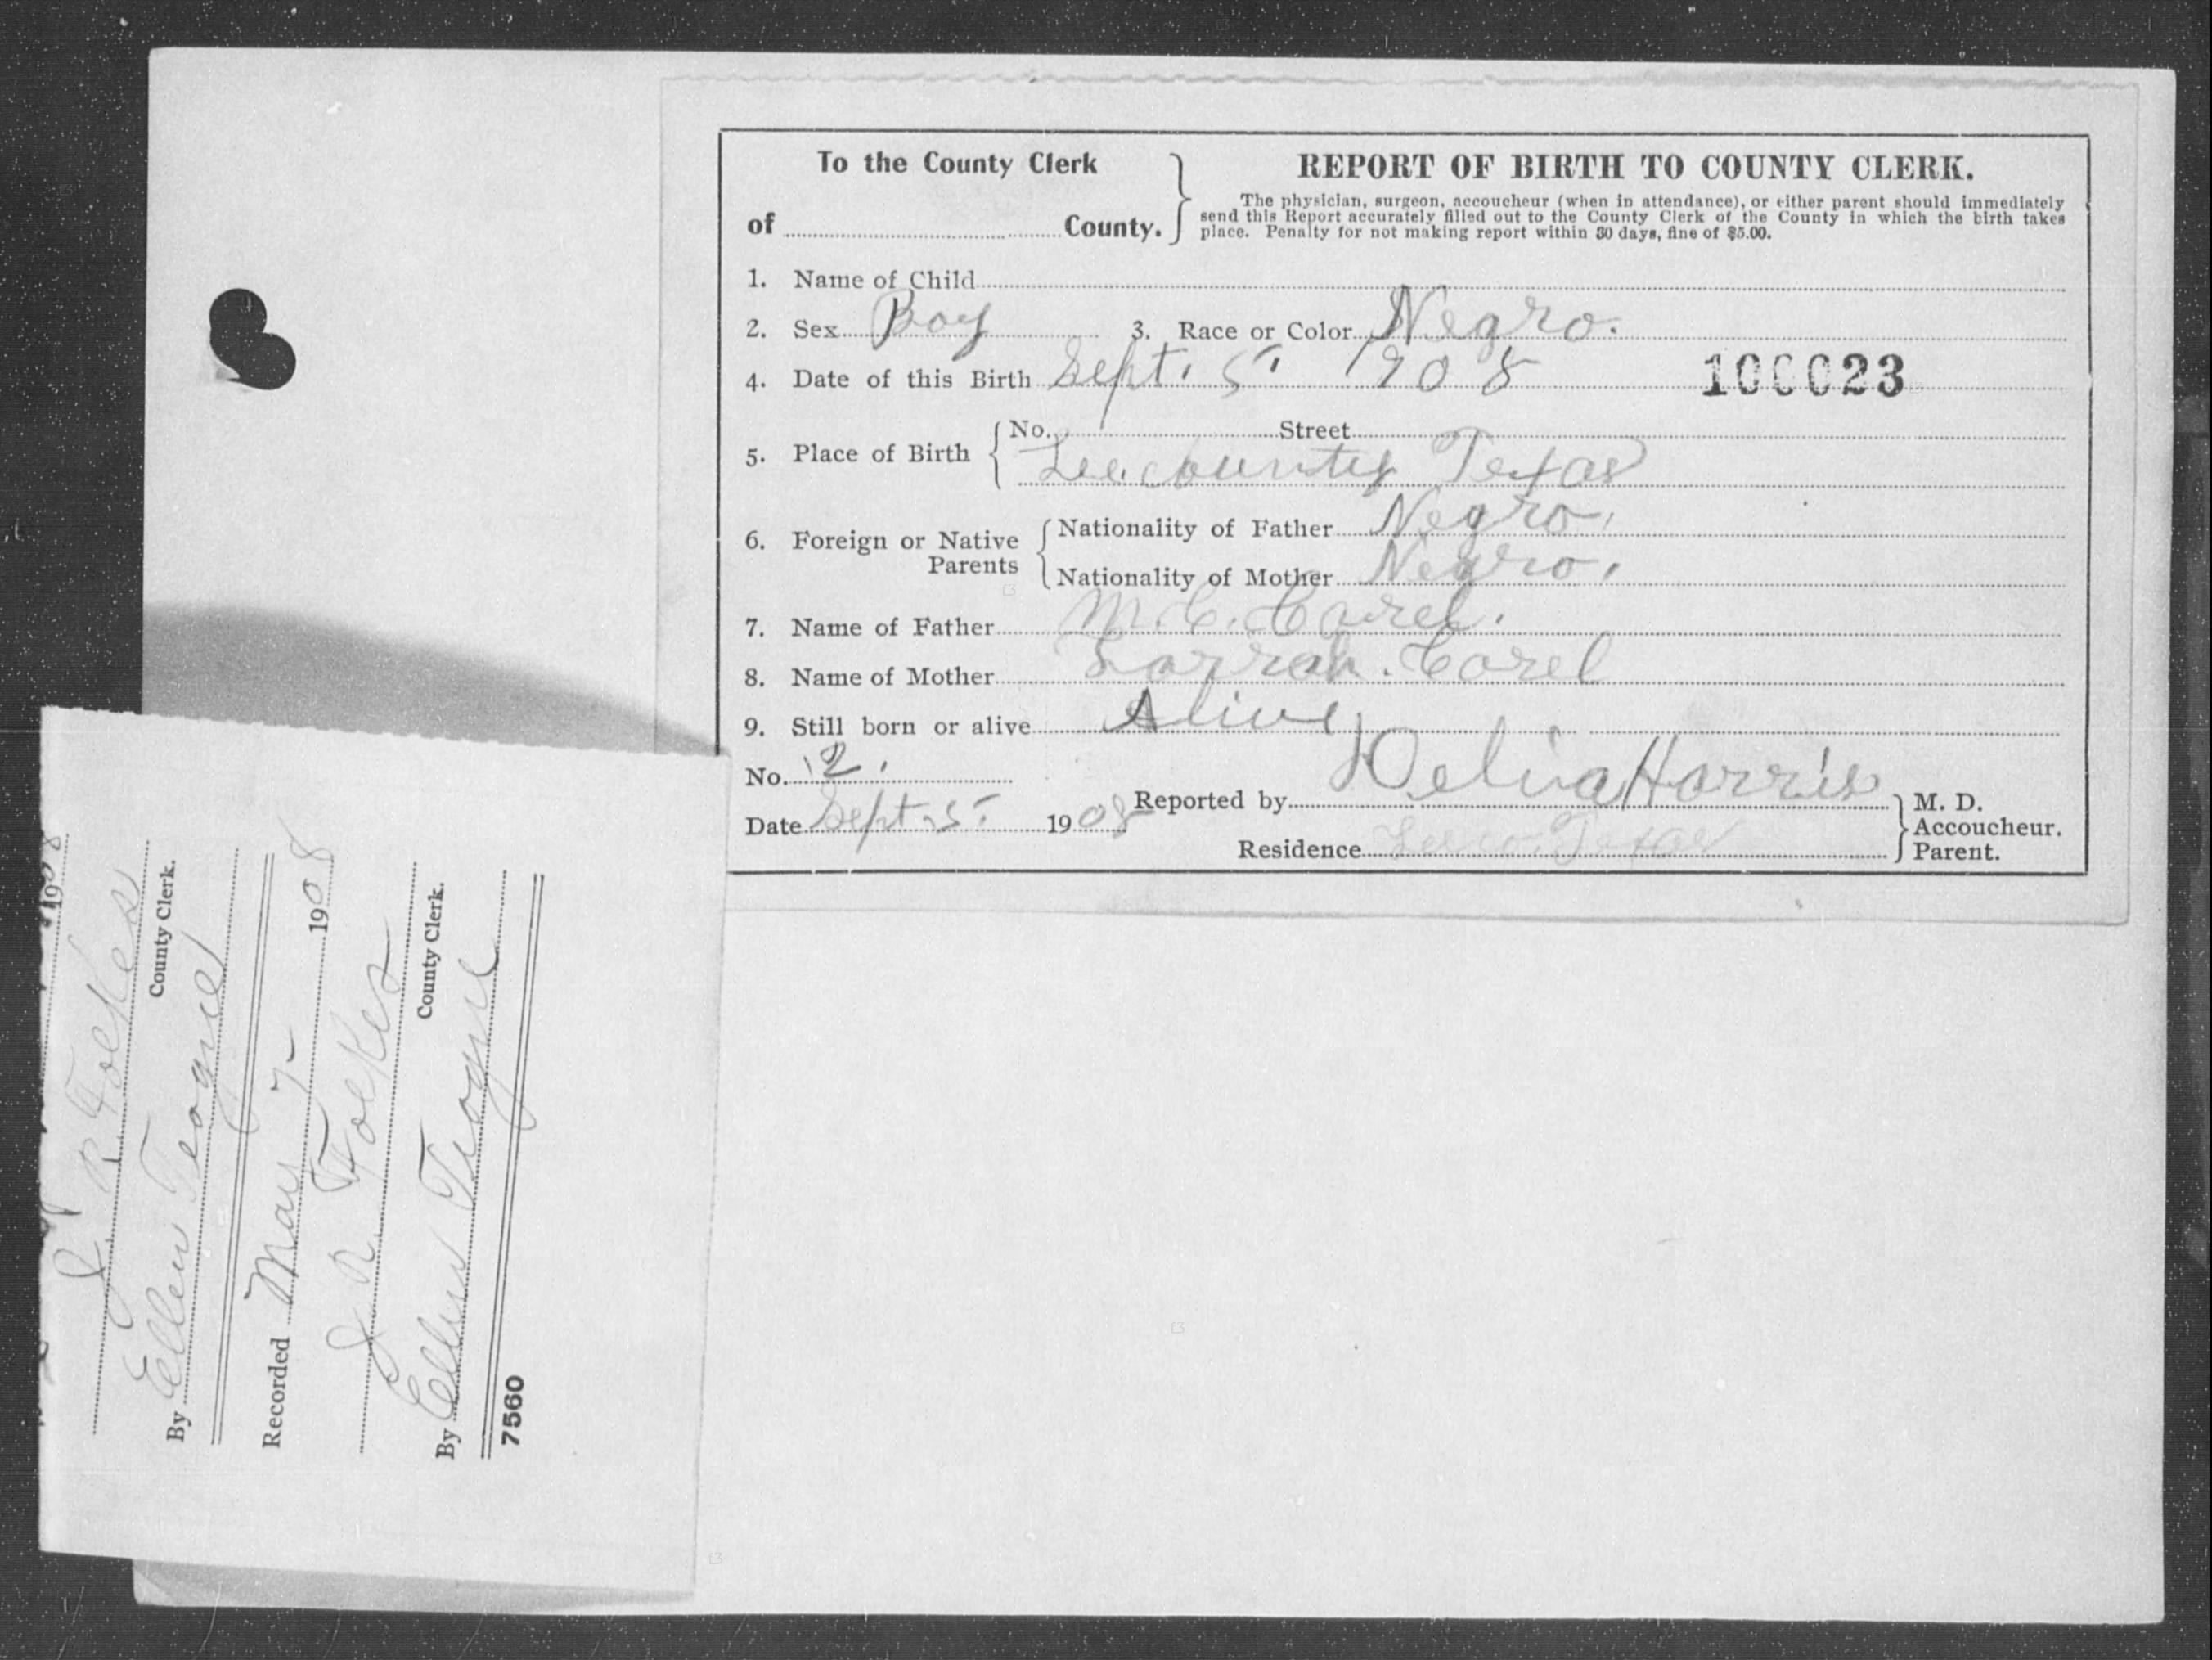 To the County Clerk
of County.
REPORT OF BIRTH TO COUNTY CLERK.
The physician, surgeon, accoucheur (when in attendance), or either parent should immediately
send this Report accurately filled out to the County Clerk of the County in which the birth takes
place. Penalty for not making report within 30 days, fine of $5.00.
1. Name of Child
2. Sex Boy 3. Race or Color Negro.
4. Date of this Birth Sept. 5. 1908 100023
5. Place of Birth No. Street
Lee. County Texas
6. Foreign or Native Parents
Nationality of Father Negro.
Nationality of Mother Negro.
7. Name of Father M. C. Carel.
8. Name of Mother Sarrah. Carel
9. Still born or alive Alive
No. 12.
Date Sept. 5. 1908
Reported by Delia Harris
Residence Lee co. Texas
M. D.
Accoucheur.
Parent.
1908
J. R. Folkes
County Clerk.
By Ellen
Recorded 7 1908
J. R. Folkes
County Clerk.
By Ellen
7560